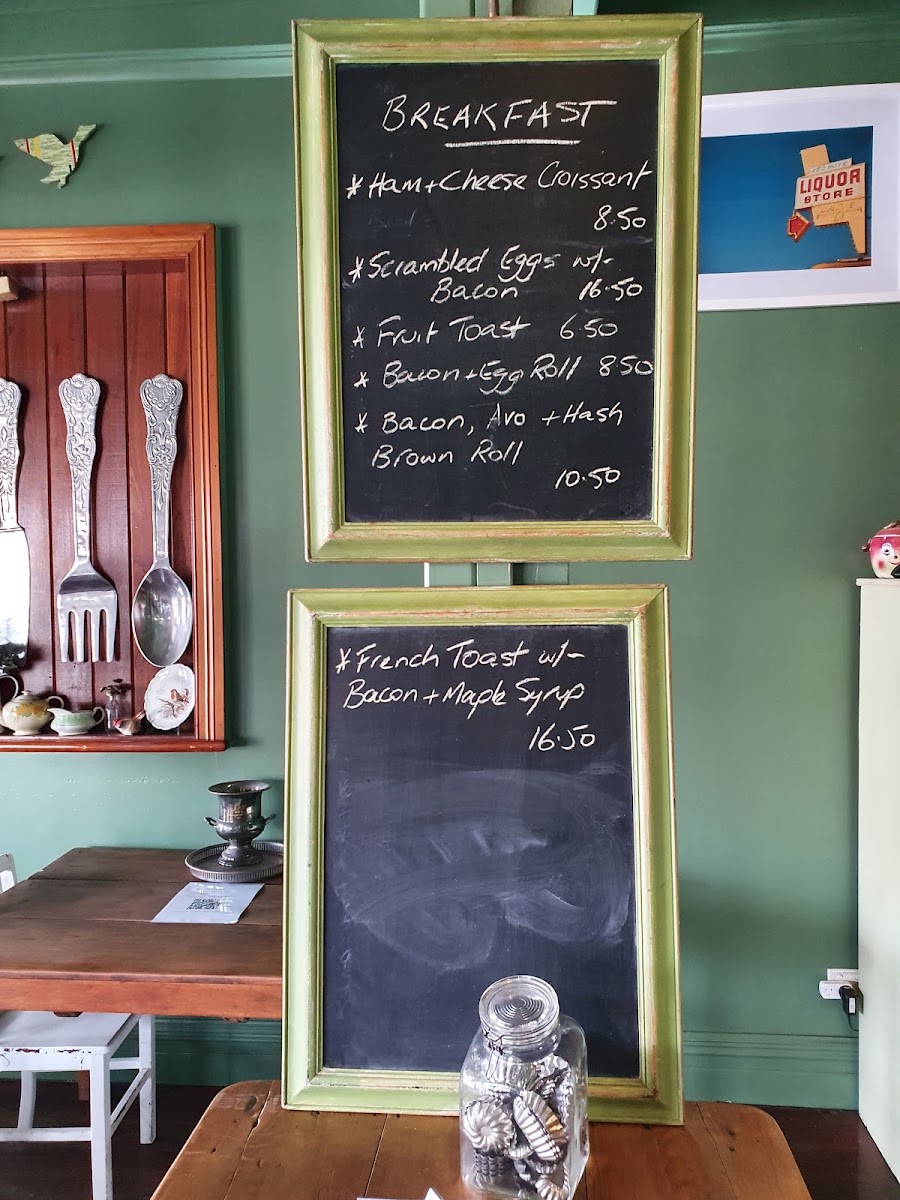 BREAKFAST
* Ham + Cheese Croissant
8.50
* Scrambled Eggs w/-
Bacon 16.50
* Fruit Toast 6.50
* Bacon + Egg Roll 8.50
* Bacon, Avo + Hash
Brown Roll
10.50
* French Toast w/-
Bacon + Maple Syrup
16.50
LIQUOR
STORE